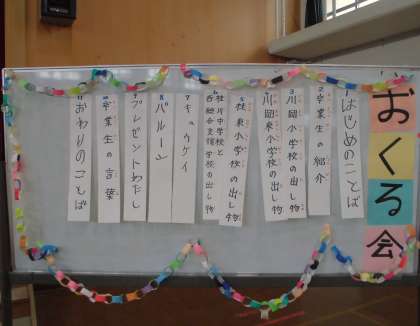 おくる会
1 はじめのことば
2 卒業生の紹介
3 川岡小学校の出し物
4 川岡東小学校の出し物
5 桂東小学校の出し物
6 桂川中学校と
西総合支援学校の出し物
7 キュウケイ
8 バルーン
9 プレゼントわたし
10 卒業生の言葉
11 おわりのことば